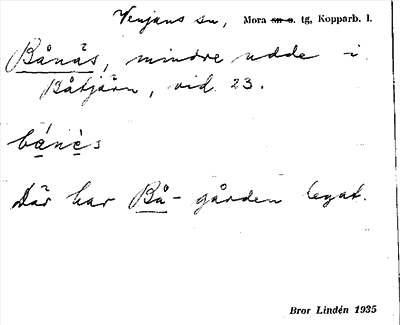 Venjans sn, Mora sn o. tg, Kopparb. l.
Bånäs, mindre udde i
Båtjärn, vid 23.
bá̱nè̱s
Där har Bå-gården legat.
Bror Lindén 1935